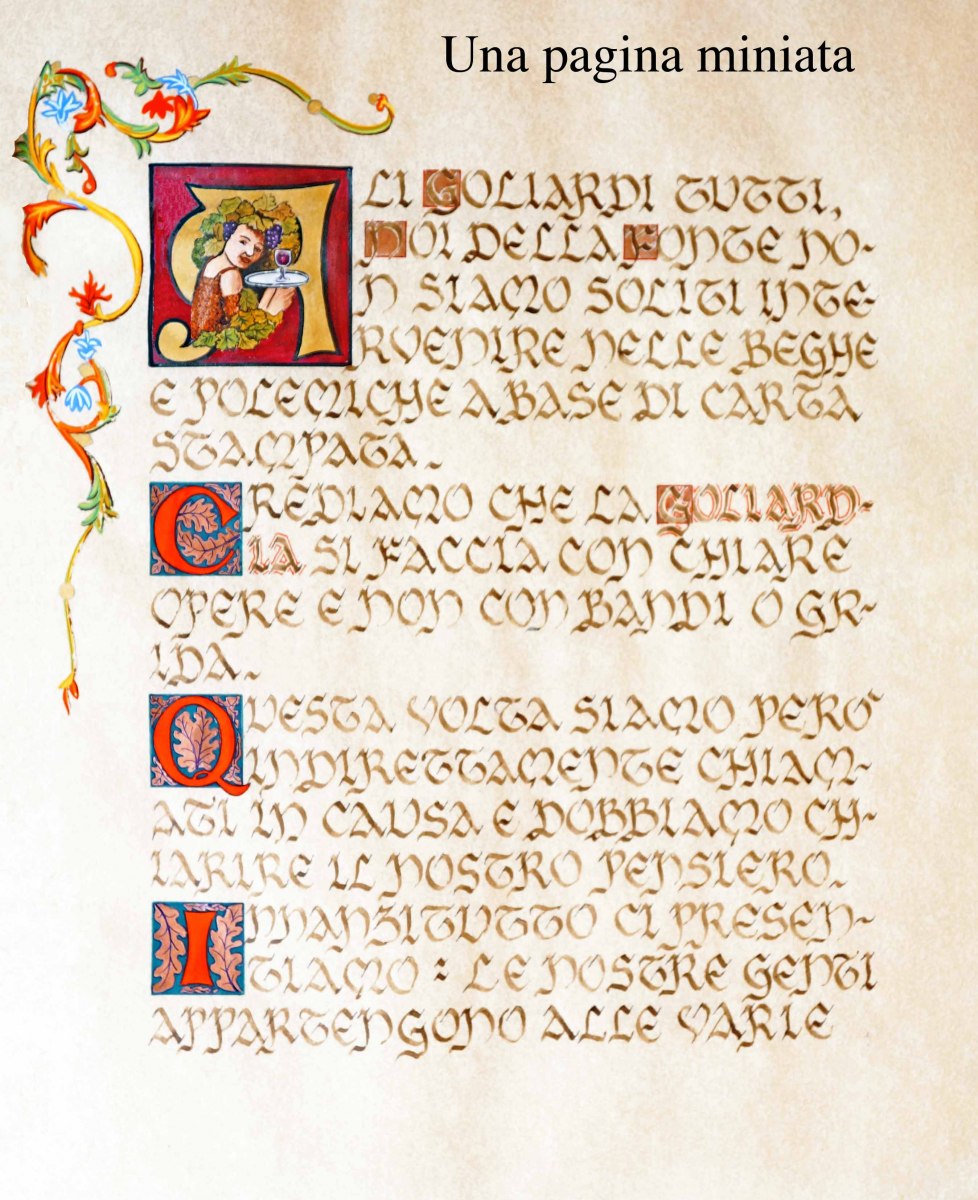 Una pagina miniata
ALI GOLIARDI TUTTI,
NOI DELLA FONTE NO-
N SIAMO SOLITI INTE-
RVENIRE NELLE BEGHE
E POLEMICHE A BASE DI CARTA
STAMPATA.
CREDIAMO CHE LA GOLIARD-
IA SI FACCIA CON CHIARE
OPERE E NON CON BANDI O GR-
IDA.
QUESTA VOLTA SIAMO PERÒ
INDIRETTAMENTE CHIAM-
ATI IN CAUSA E DOBBIAMO CH-
IARIRE IL NOSTRO PENSIERO.
INNANZITUTTO CI PRESEN-
TIAMO : LE NOSTRE GENTI
APPARTENGONO ALLE VARIE